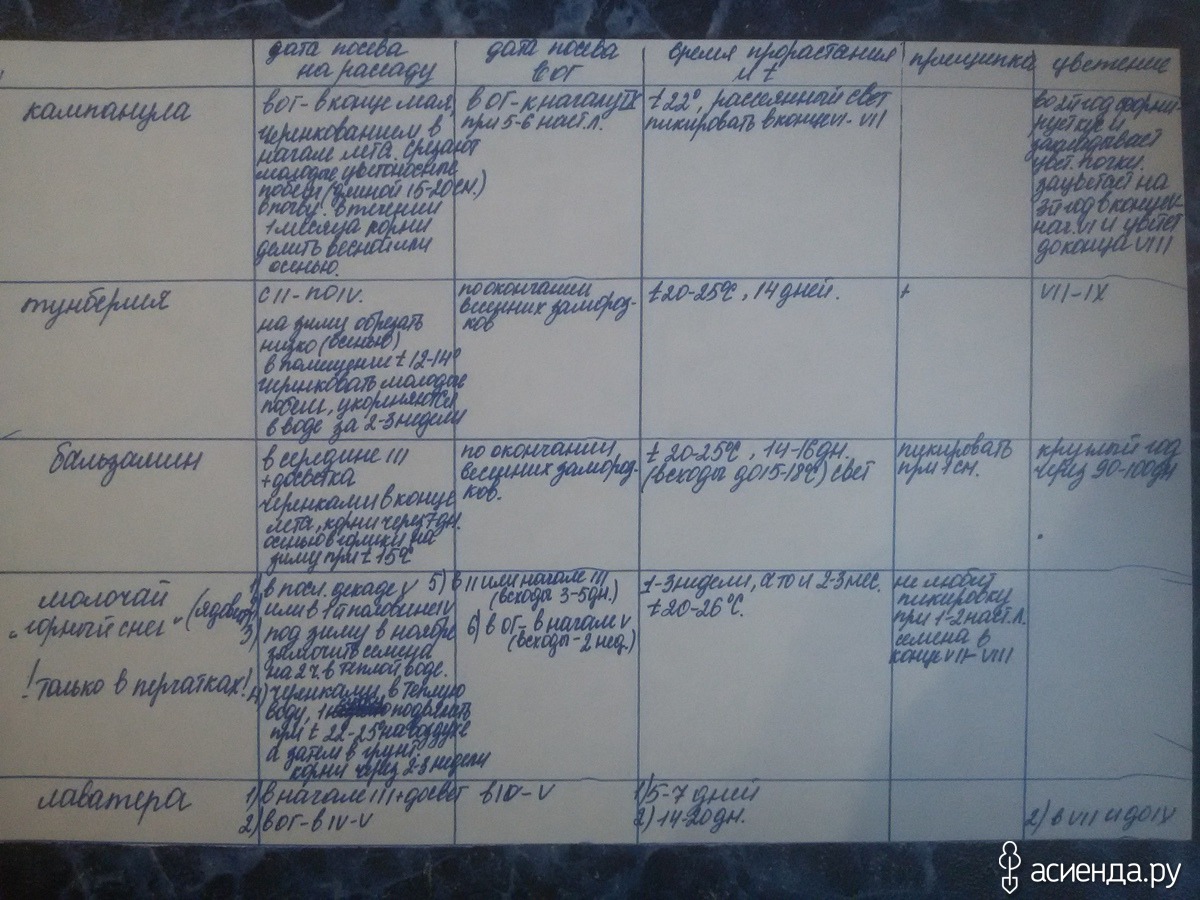 дата посева
на рассаду
дата посева
в ОГ
время прорастания
и t
прищипка
цветение
кампанула
в ОГ - в конце мая,
черенкованием в
начале лета. срезают
молодые цветоносные
побеги (длиной 15-20см.)
в почву. в течении
1 месяца корни
делить весной или
осенью.
в ОГ - к началу IX
при 5-6 наст. л.
t 22°, рассеянный свет
пикировать в конце VI - VII
во 2й год форми-
рует куст и
закладывает
цвет. почки.
зацветает на
3й год в конце V-
нач. VI и цветёт
до конца VIII
тунбергия
с II - по IV.
на зиму обрезать
низко (осенью)
в помещение t 12-14°
черенковать молодые
побеги, укореняются
в воде за 2-3 недели
по окончании
весенних замороз-
ков
t 20-25°С, 14 дней.
+
VII - IX
бальзамин
в середине III
+ досветка
черенками в конце
лета, корни через 7 дн.
осенью в горшки на
зиму при t 15°С
по окончании
весенних замороз-
ков.
t 20-25°С, 14-16 дн.
(всходы до 15-18°С) свет
пикировать
при 1 см.
круглый год
через 90-100 дн
молочай
"горный снег" (ядовит)
! только в перчатках!
1) в посл. декаде V
2) или в 1й половине IV
3) под зиму в ноябре
замочить семена
на 2 ч. в теплой воде.
4) черенками, в теплую
воду, 1 подержать
при t 22-25° на воздухе
а затем в грунт.
корни через 2-3 недели
5) в II или начале III
(всходы 3-5 дн.)
6) в ОГ - в начале V
(всходы - 2 нед.)
1-3 недели, а то и 2-3 мес.
t 20-26°С.
не любит
пикировку
при 1-2 наст. л.
семена в
конце VII - VIII
лаватера
1) в начале III + досвет
2) в ОГ - в IV - V
в IV - V
1) 5-7 дней
2) 14-20 дн.
2) в VII и до IX
асиенда.ру